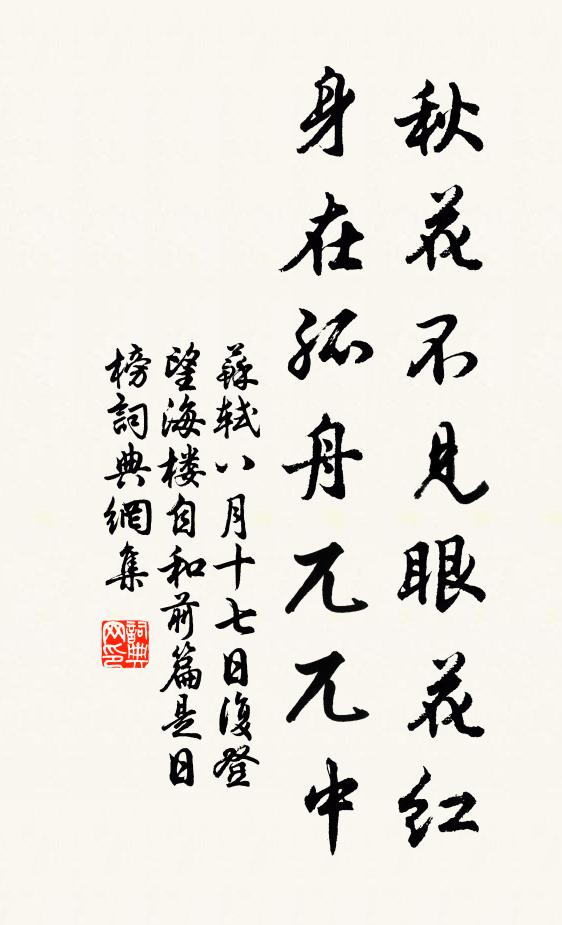 秋花不见眼花红
身在孤舟兀兀中
蘇軾八月十七日復登
望海楼自和前篇是日
榜詞典網集
詞典
网印